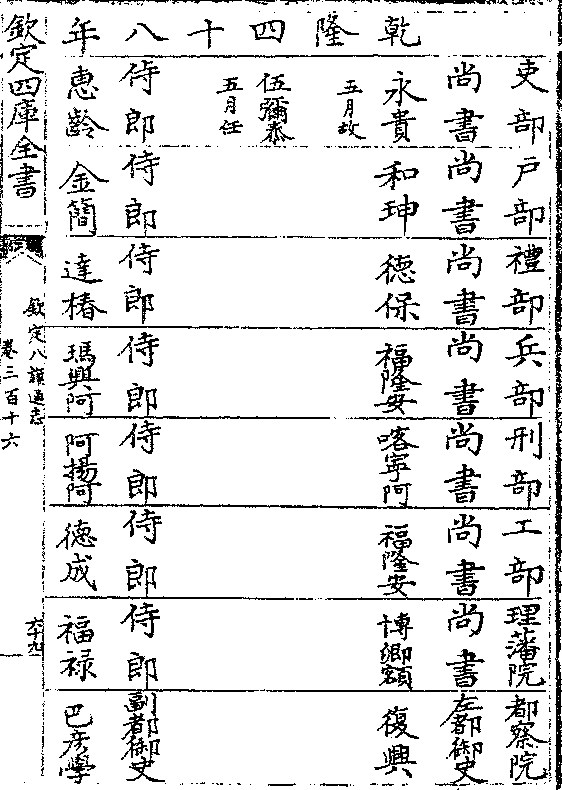 乾隆四十八年
吏部 戶部 禮部 兵部 刑部 工部 理藩院 都察院
尚書 尚書 尚書 尚書 尚書 尚書 尚書 左都御史
永貴 五月故 和珅 德保 福隆安 喀寧阿 福隆安 博卿額 復興
伍彌泰 五月任
侍郎 侍郎 侍郎 侍郎 侍郎 侍郎 侍郎 副都御史
惠齡 金簡 達椿 瑪興阿 阿揚阿 德成 福祿 巴彥學
欽定四庫全書
欽定八旗通志
卷三百十六